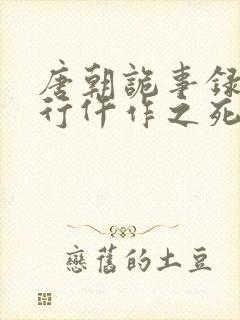 唐朝詭事錄
行仵作之死
戀舊的土豆